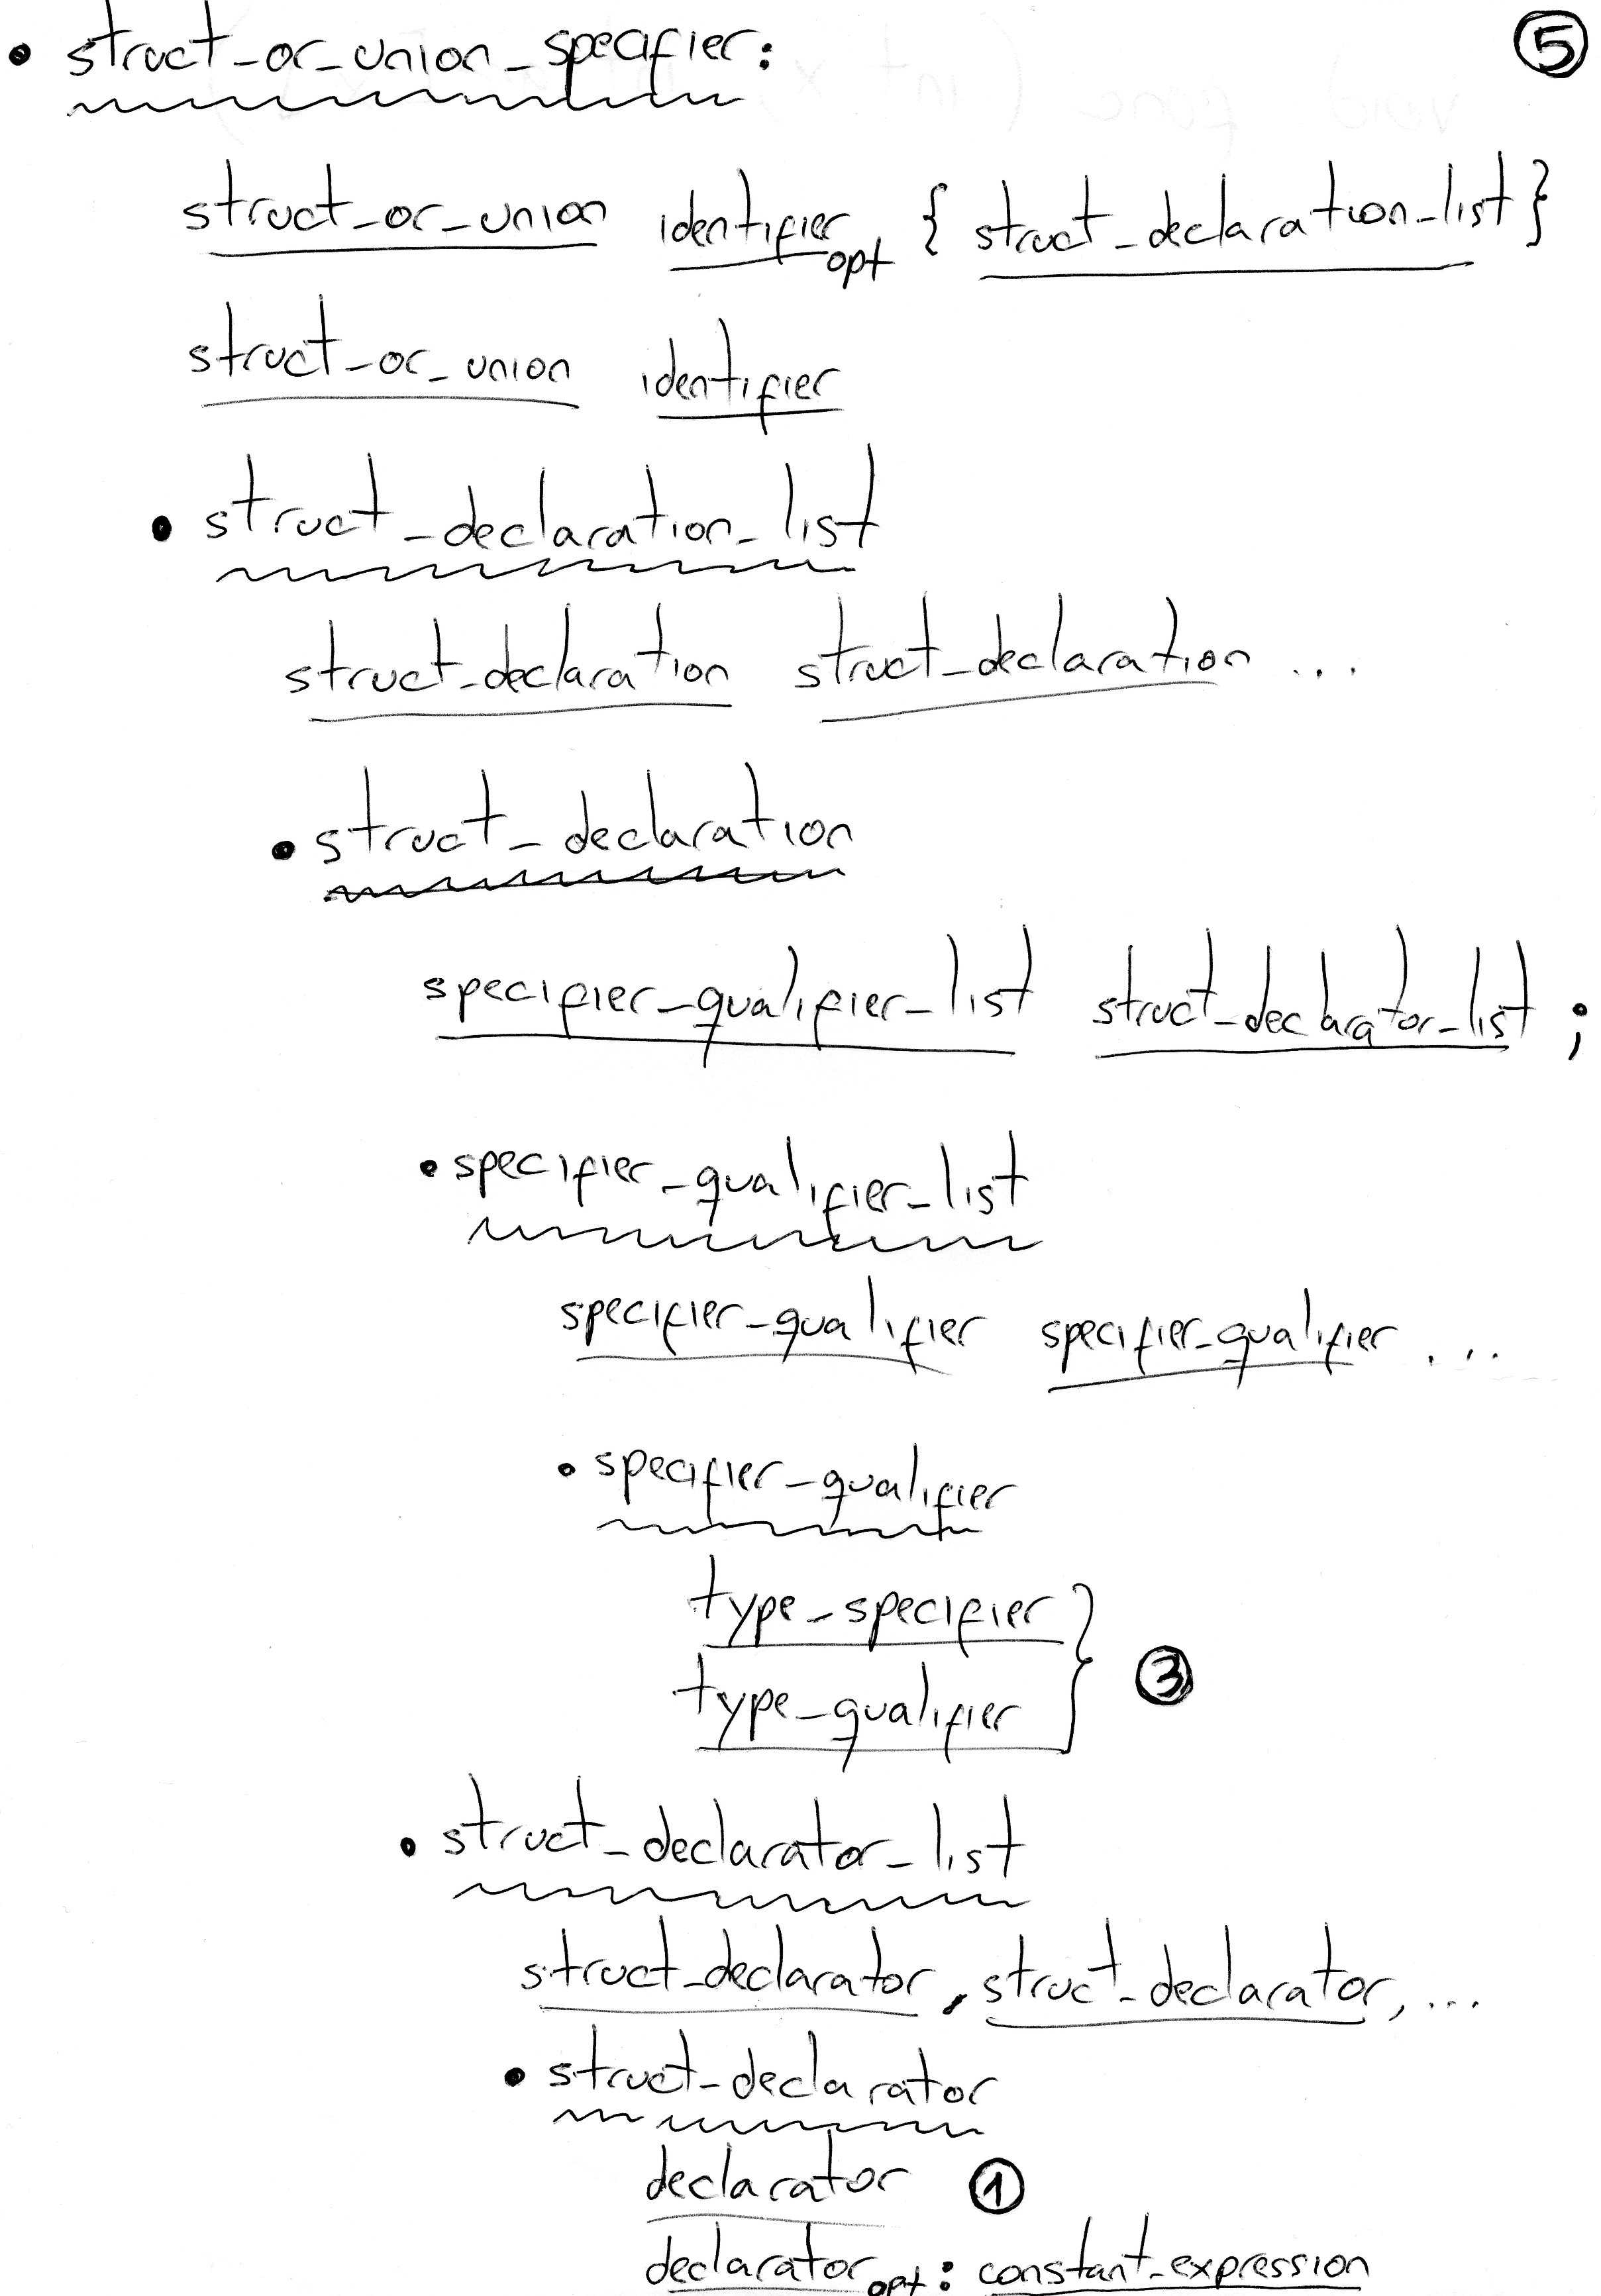 • struct_or_union_specifier: ⑤
struct_or_union identifier opt { struct_declaration_list }
struct_or_union identifier
• struct_declaration_list
struct_declaration struct_declaration ...
• struct_declaration
specifier_qualifier_list struct_declarator_list ;
• specifier_qualifier_list
specifier_qualifier specifier_qualifier ...
• specifier_qualifier
type_specifier
type_qualifier } ③
• struct_declarator_list
struct_declarator, struct_declarator, ...
• struct_declarator
declarator ①
declarator opt : constant_expression